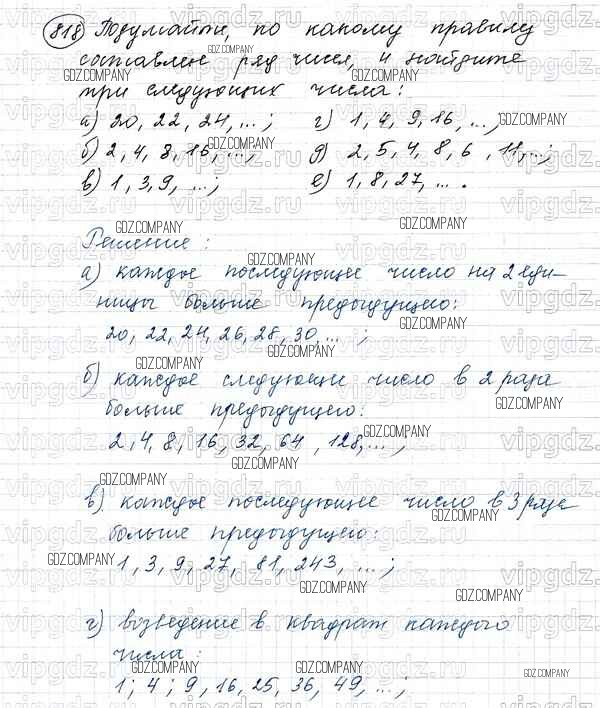 818 Подумайте, по какому правилу
составлен ряд чисел, и найдите
три следующих числа:
а) 20, 22, 24, ...; г) 1, 4, 9, 16, ...;
б) 2, 4, 8, 16, ...; д) 2, 5, 4, 8, 6, 11, ...;
в) 1, 3, 9, ...; е) 1, 8, 27, ... .
Решение:
а) каждое последующее число на 2 еди-
ницы больше предыдущего:
20, 22, 24, 26, 28, 30, ... ;
б) каждое следующее число в 2 раза
больше предыдущего:
2, 4, 8, 16, 32, 64, 128, ... ;
в) каждое последующее число в 3 раза
больше предыдущего:
1, 3, 9, 27, 81, 243, ... ;
г) возведение в квадрат каждого
числа:
1; 4; 9, 16, 25, 36, 49, ...;
GDZ.COMPANY
vipgdz.ru